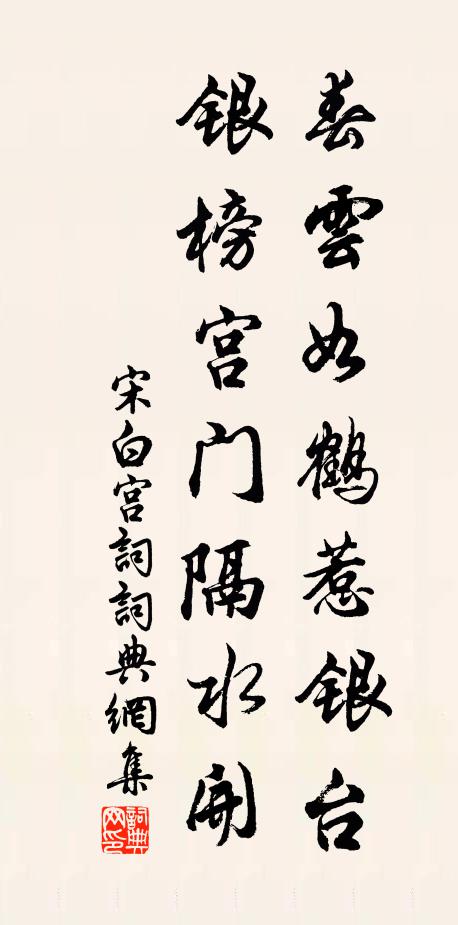 春雲如鶴惹銀台
銀榜宫门隔水開
宋白宫詞詞典網集
詞典网印